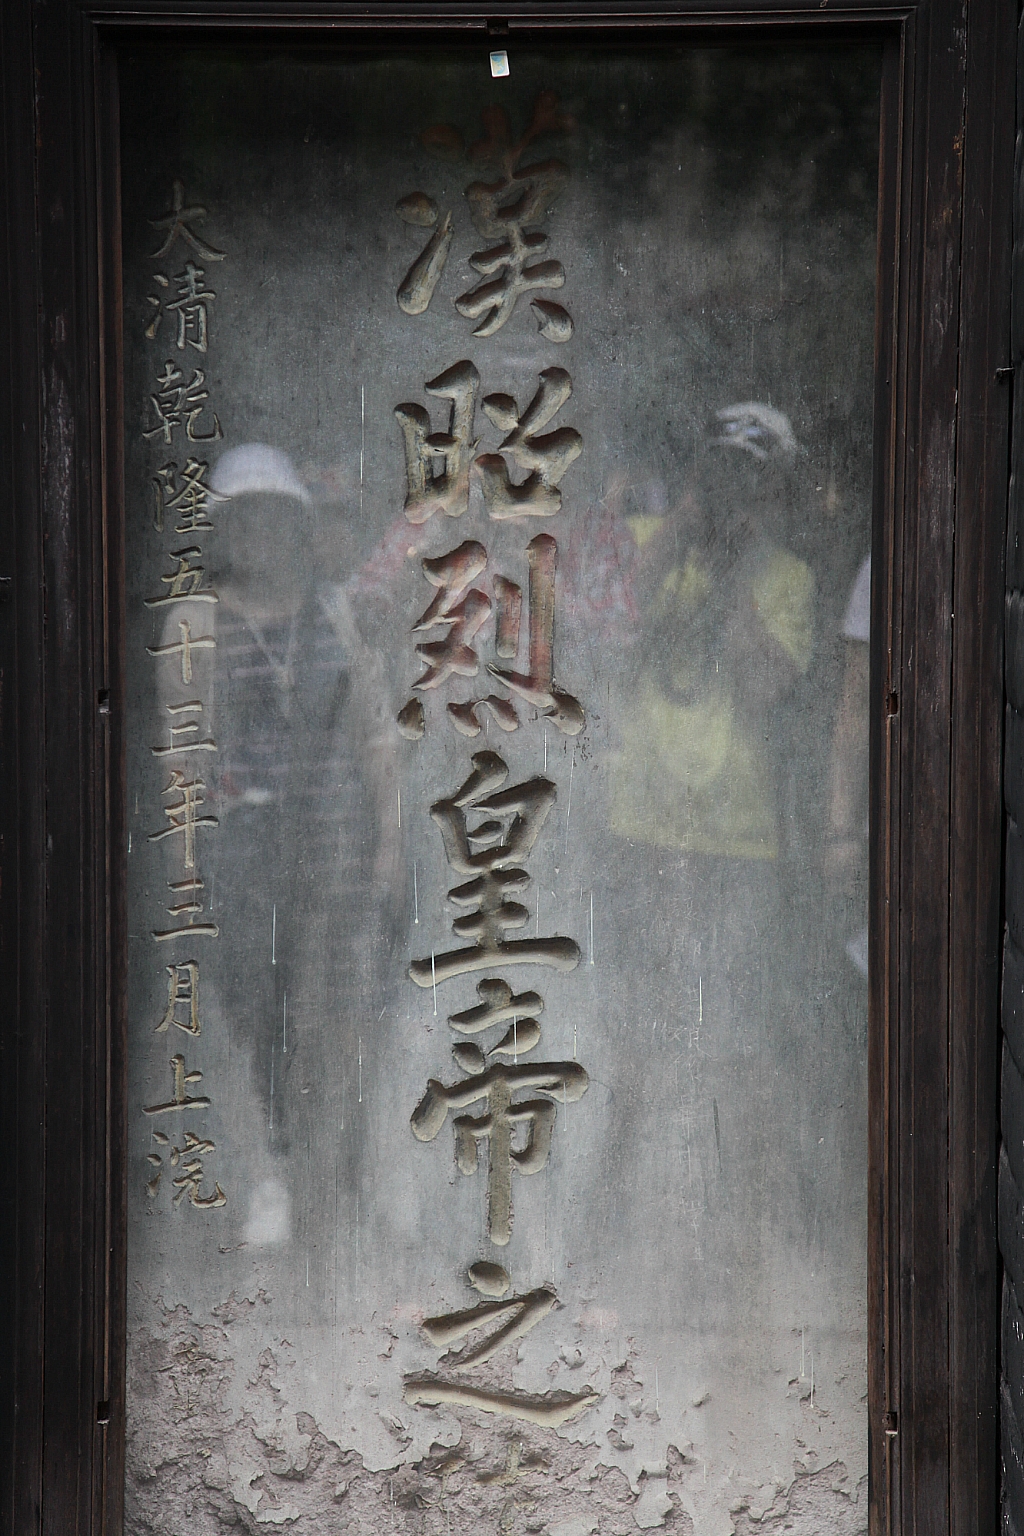 漢昭烈皇帝之
大清乾隆五十三年三月上浣